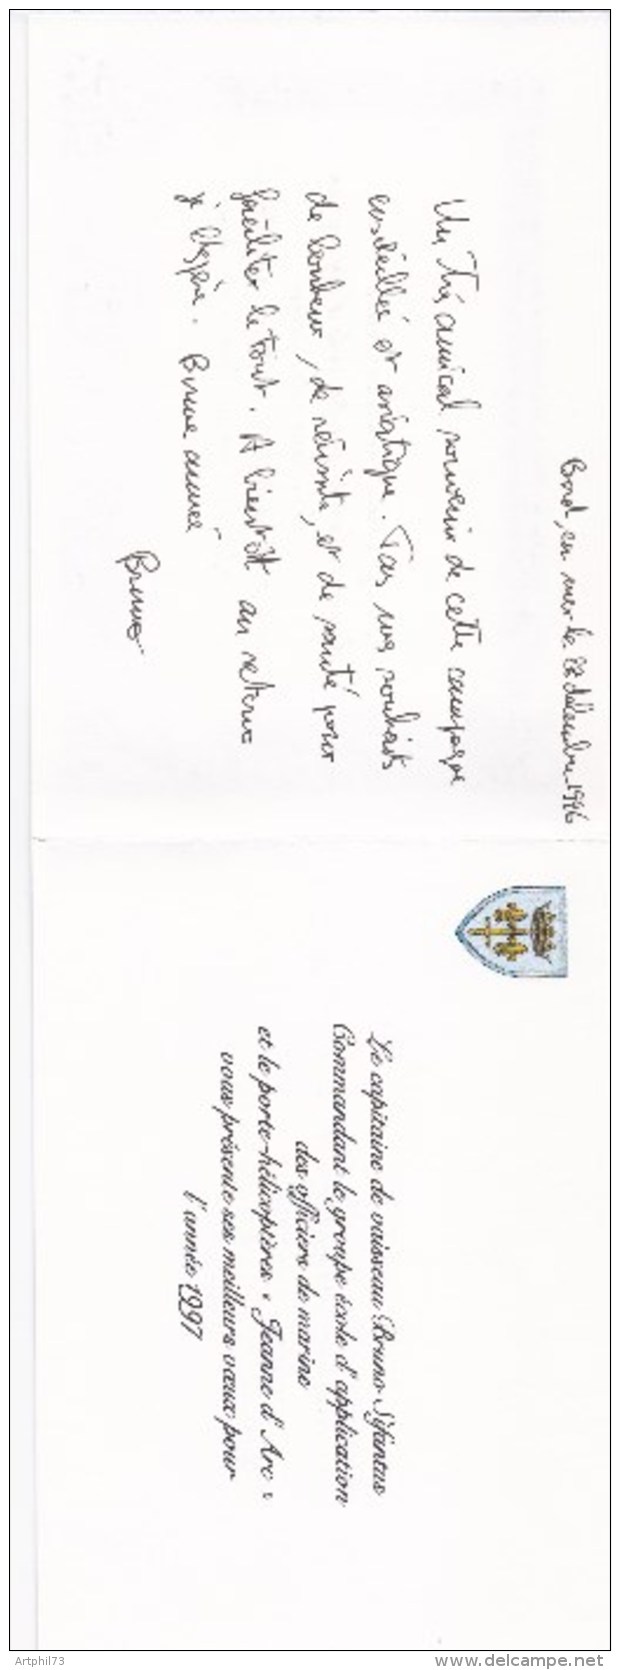 Bord, en mer le 22 décembre 1996
Un très amical souvenir de cette campagne
ensoleillée et asiatique. Tous nos souhaits
de bonheur, de réussite, et de santé pour
faciliter le tout. A bientôt au retour
j'espère. Bonne année
Bruno
Le capitaine de vaisseau Bruno Nifantus
Commandant le groupe école d'application
des officiers de marine
et le porte-hélicoptères « Jeanne d'Arc »
vous présente ses meilleurs vœux pour
l'année 1997
Artphil73
www.delcampe.net